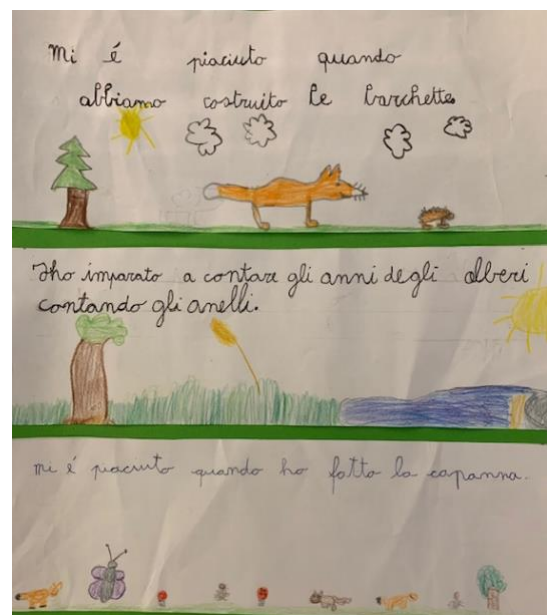 Mi é piaciuto quando
abbiamo costruito le barchette.
Ho imparato a contare gli anni degli alberi
contando gli anelli.
mi é piaciuto quando ho fatto la capanna.